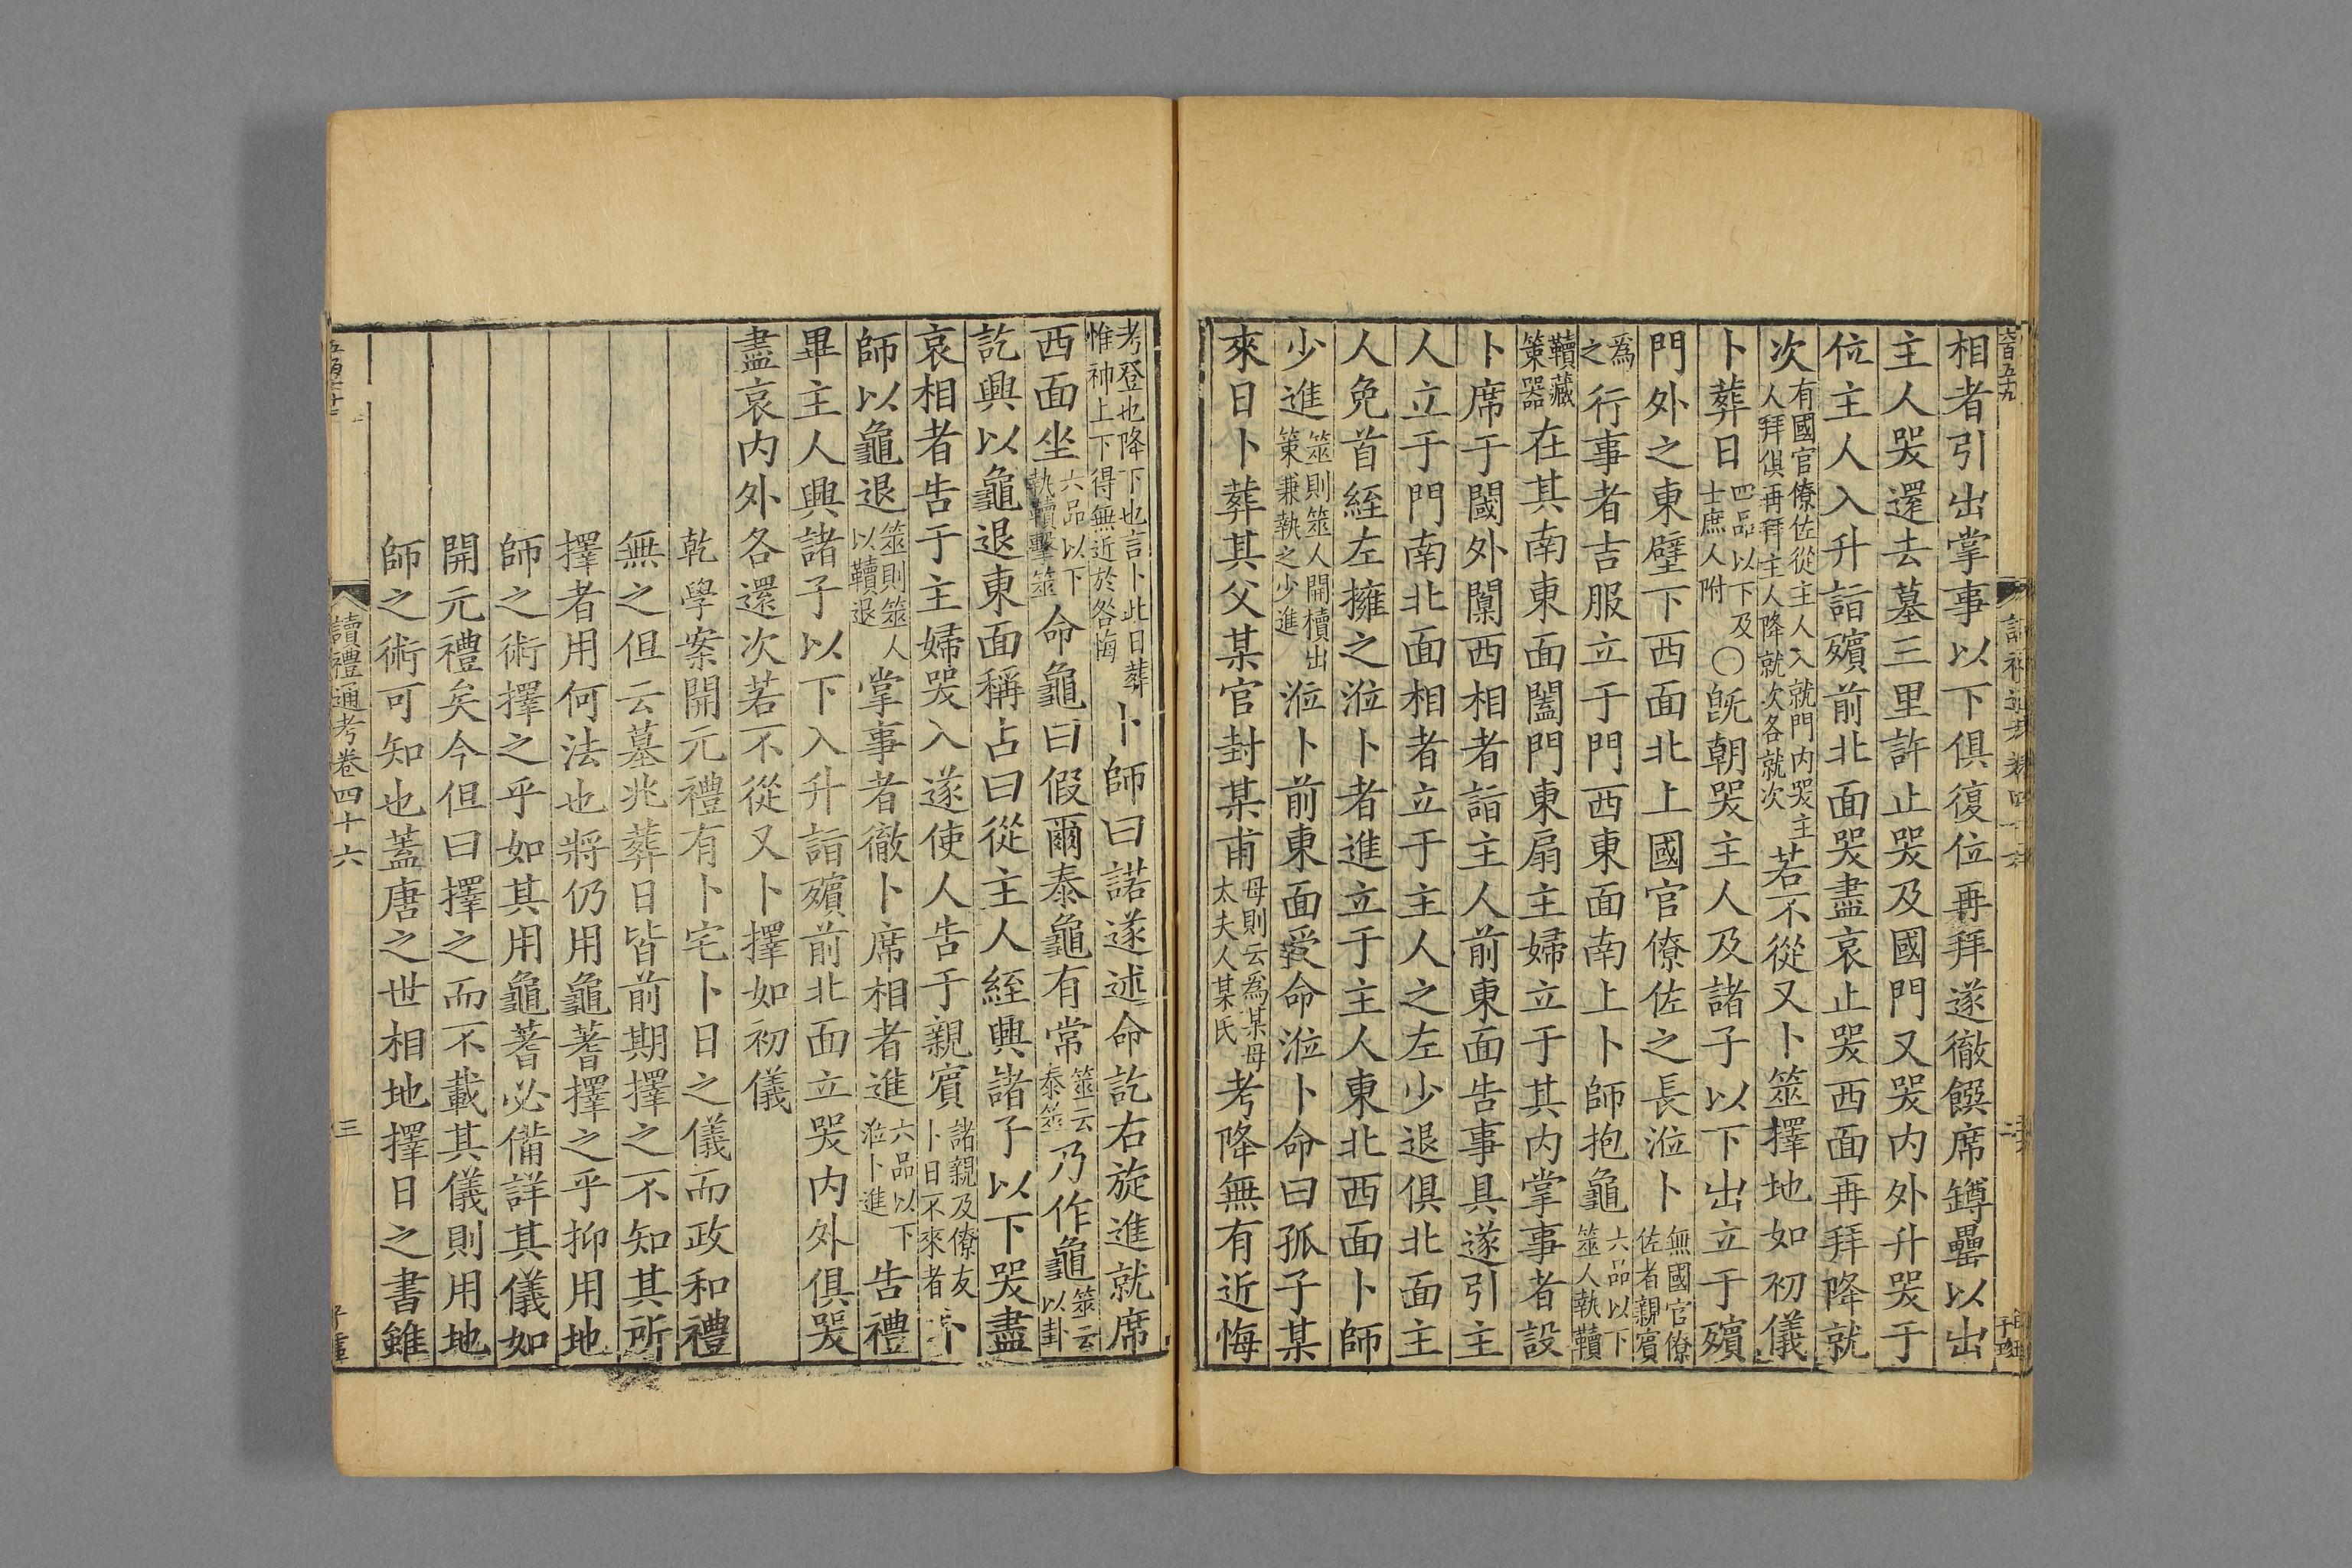 相者引出掌事以下俱復位再拜遂徹饌席罇罍以出
主人哭還去墓三里許止哭及國門又哭内外升哭于
位主人入升詣殯前北面哭盡哀止哭西面再拜降就
次有國官僚佐從主人入就門内哭主人拜俱再拜主人降就次各就次若不從又卜筮擇地如初儀
卜葬日四品以下及士庶人附〇旣朝哭主人及諸子以下出立于殯
門外之東壁下西面北上國官僚佐之長涖卜無國官僚佐者親賓
爲之行事者吉服立于門西東面南上卜師抱龜六品以下筮人執韇
韇藏策器在其南東面闔門東扇主婦立于其内掌事者設
卜席于闑外闃西相者詣主人前東面告事具遂引主
人立于門南北面相者立于主人之左少退俱北面主
人免首絰左擁之涖卜者進立于主人東北西面卜師
少進筮則筮人開櫝出策兼執之少進涖卜前東面受命涖卜命曰孤子某
來日卜葬其父某官封某甫母則云爲某母太夫人某氏考降無有近悔
考登也降下也言卜此日葬惟神上下得無近於咎悔卜師曰諾遂述命訖右旋進就席
西面坐六品以下執韇擊筮命龜曰假爾泰龜有常筮云泰筮乃作龜筮云以卦
訖興以龜退東面稱占曰從主人絰興諸子以下哭盡
哀相者告于主婦哭入遂使人告于親賓諸親及僚友卜日不來者卜
師以龜退筮則筮人以韇退掌事者徹卜席相者進六品以下涖卜進告禮
畢主人興諸子以下入升詣殯前北面立哭内外俱哭
盡哀内外各還次若不從又卜擇如初儀
乾學案開元禮有卜宅卜日之儀而政和禮
無之但云墓兆葬日皆前期擇之不知其所
擇者用何法也將仍用龜蓍擇之乎抑用地
師之術擇之乎如其用龜蓍必備詳其儀如
開元禮矣今但曰擇之而不載其儀則用地
師之術可知也蓋唐之世相地擇日之書雖
讀禮通考卷四十六
三